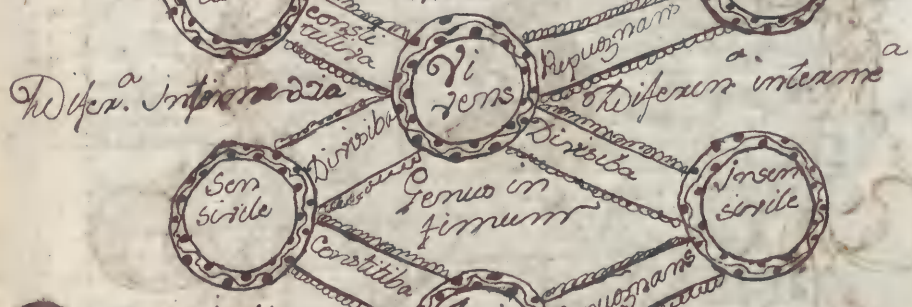 consti
tutiva
Repugnans
Vi
vens
Difer.ª Intermedia
Diferen.ª interme.ª
Divisiba
Divisiba
Sen
sivile
Genus in
fimum
Insen
sivile
Constitiba
Repugnans